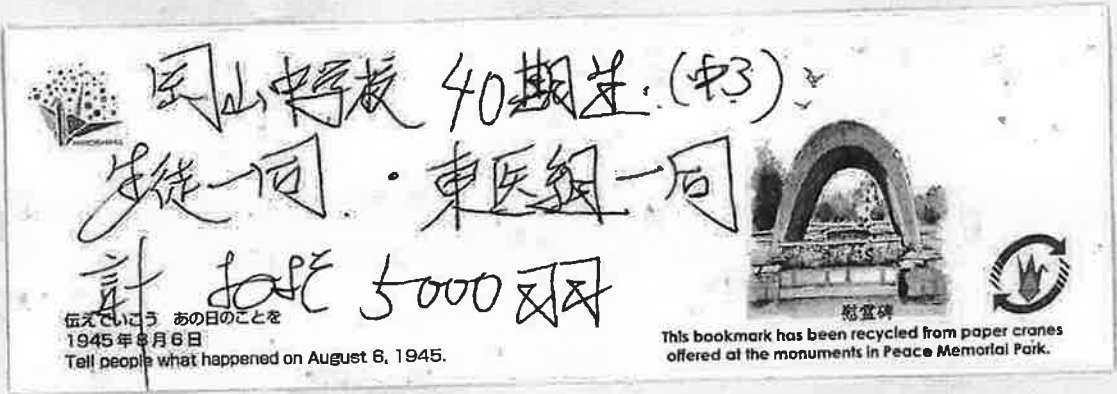 岡山中学校 40期生.(中3)
生徒一同・東医組一同
計 およそ 5000羽
HIROSHIMA
伝えていこう あの日のことを
1945年8月6日
Tell people what happened on August 6, 1945.
慰霊碑
This bookmark has been recycled from paper cranes
offered at the monuments in Peace Memorial Park.